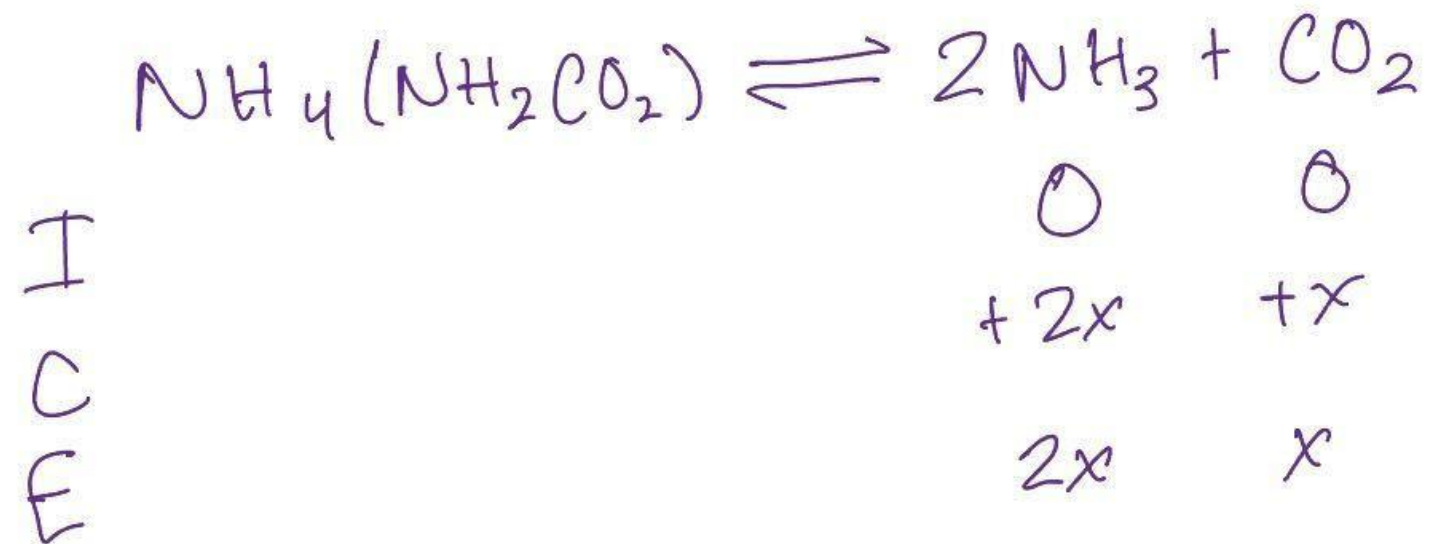 NH₄(NH₂CO₂) ⇌ 2NH₃ + CO₂
I 0 0
C +2x +x
E 2x x